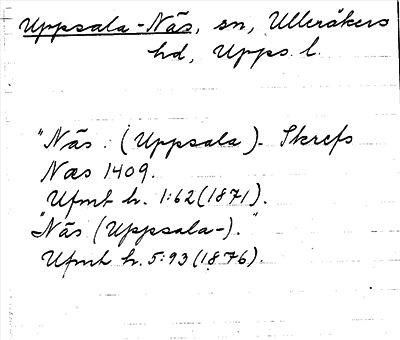 Uppsala-Näs, sn, Ulleråkers
hd, Upps. l.
"Näs (Uppsala). Skrefs
Næs 1409.
Ufmt h. 1:62 (1871).
"Näs (Uppsala-)."
Ufmt h. 5:93 (1876).